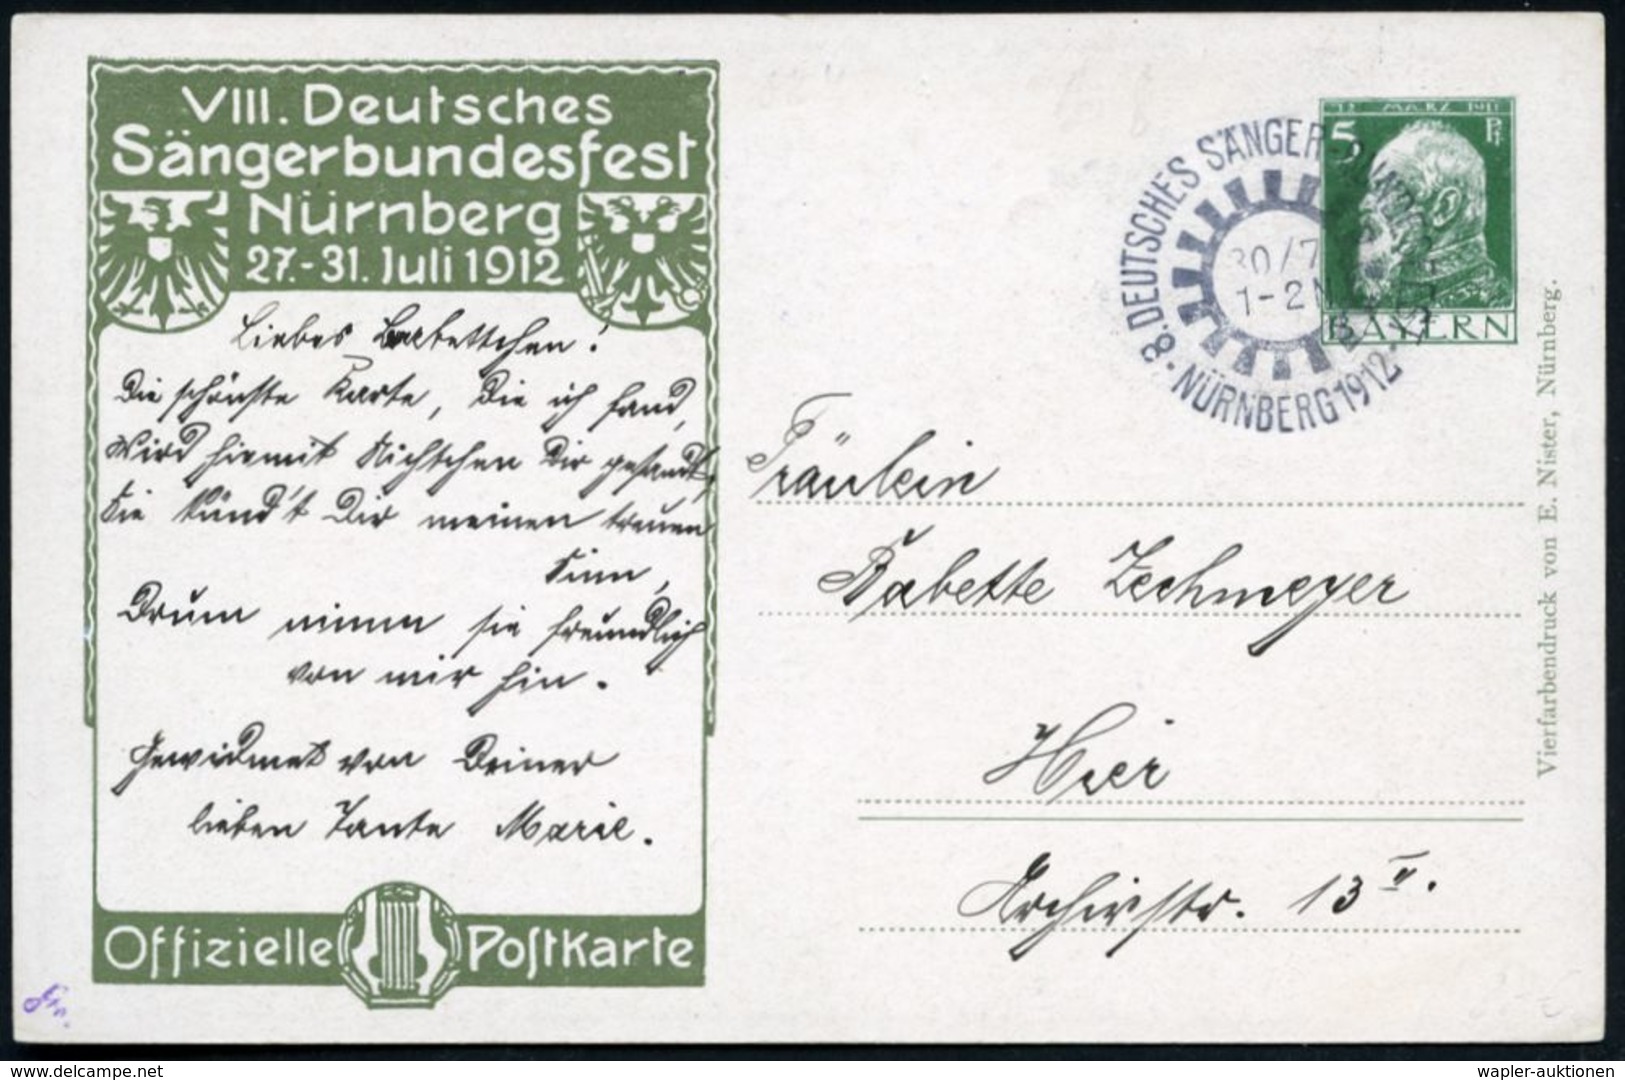 VIII. Deutsches
Sängerbundesfest
Nürnberg
27.-31. Juli 1912
Liebes Babettchen!
Die schönste Karte, die ich fand,
Wird hiermit Nichtchen Dir gesandt,
Sie künd't Dir meinen treuen
Sinn,
Drum nimm sie freundlich
von mir hin.
Gewidmet von Deiner
lieben Tante Marie.
Offizielle Postkarte
8. DEUTSCHES SÄNGERBUNDESFEST
NÜRNBERG 1912
30/7
1-2 N
12. MÄRZ 1911
5 Pf
BAYERN
Fräulein
Babette Zechmeyer
Hier
Archivstr. 13 II.
Vierfarbendruck von E. Nister, Nürnberg.
wapler-auktionen
delcampe.net